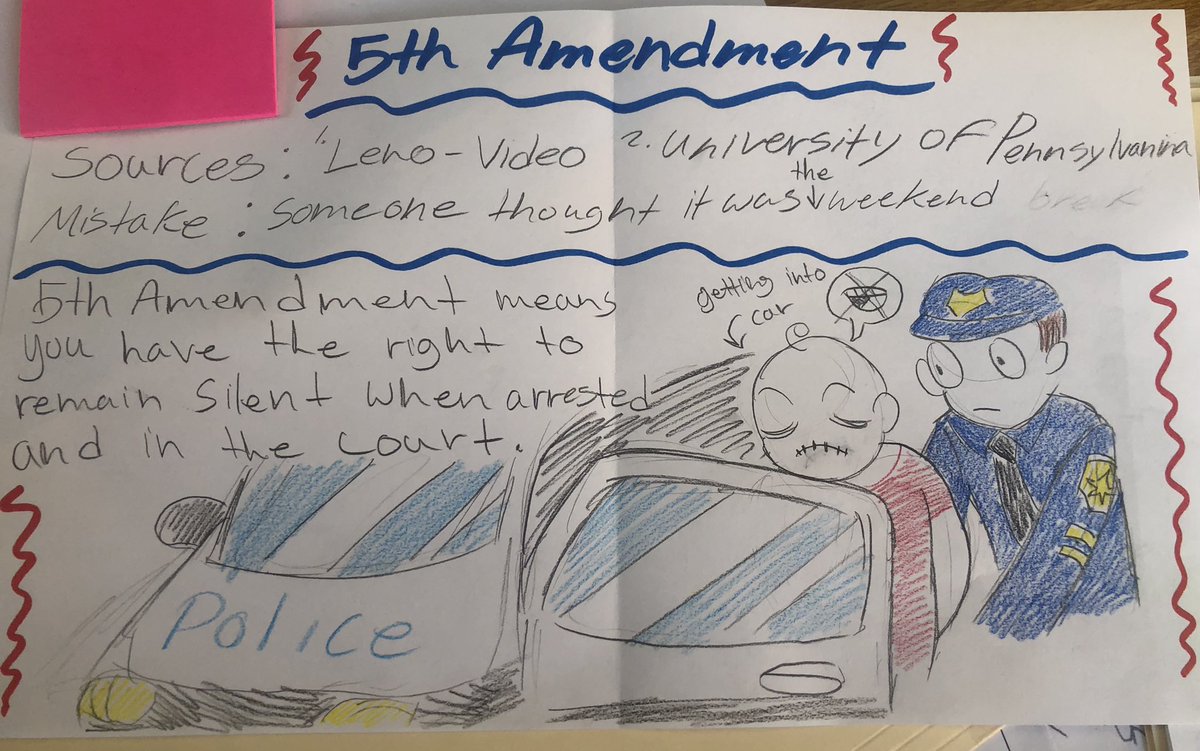 5th Amendment
Sources: 1. Leno-Video 2. University of Pennsylvanina
Mistake: Someone thought it was the weekend break
5th Amendment means
you have the right to
remain Silent when arrested
and in the court.
getting into
car
Police